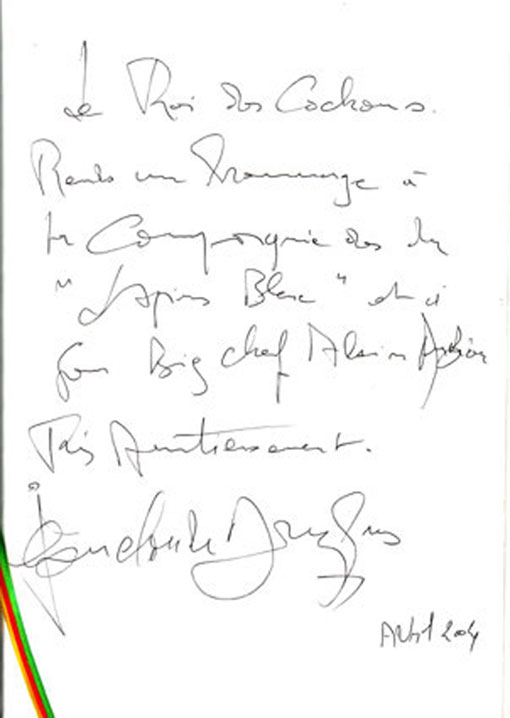 Le Roi des Cochons.
Rends un Hommage à
la Compagnie des du
"Lapins Blanc" et à
son Big chef Alain
Très Amitieusement.
Jean Claude Dreyfus
Avril 2004